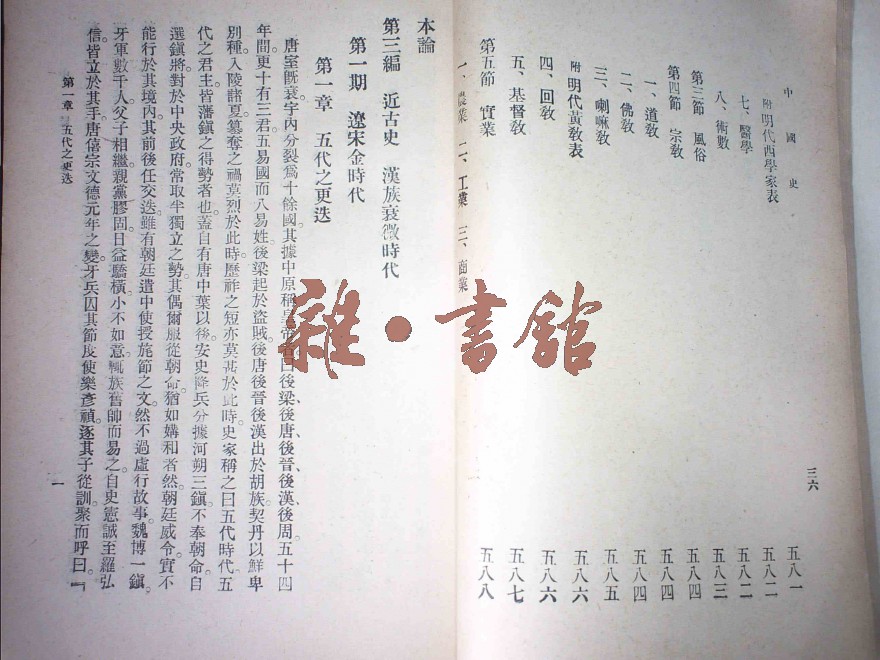 中國史
三六
附明代西學家表 五八一
七、醫學 五八二
八、術數 五八二
第三節 風俗 五八三
第四節 宗教 五八四
一、道教 五八四
二、佛教 五八四
三、喇嘛教 五八五
附明代黃教表 五八六
四、回教 五八六
五、基督教 五八七
第五節 實業 五八八
一、農業 二、工業 三、商業
本論
第三編 近古史 漢族衰微時代
第一期 遼宋金時代
第一章 五代之更迭
唐室旣衰。宇內分裂爲十餘國。其據中原稱皇帝者曰後梁、後唐、後晉、後漢、後周。五十四
年間更十有三君。五易國而八易姓。後梁起於盜賊。後唐後晉後漢出於胡族。契丹以鮮卑
別種。入陵諸夏。簒奪之禍莫烈於此時。歷祚之短亦莫甚於此時。史家稱之曰五代時代。五
代之君主。皆藩鎭之得勢者也。蓋自有唐中葉以後。安史降兵分據河朔三鎭。不奉朝命。自
選鎭將。對於中央政府。常取半獨立之勢。其偶爾服從朝命。猶如媾和者然。朝廷威令。實不
能行於其境內。其前後任交迭。雖有朝廷遣中使授旄節之文。然不過虛行故事。魏博一鎭。
牙軍數千人。父子相繼。親黨膠固。日益驕橫。小不如意。輒族舊帥而易之。自史憲誠至羅弘
信皆立於其手。唐僖宗文德元年之變。牙兵囚其節度使樂彥禎。逐其子從訓。聚而呼曰。『
第一章 五代之更迭
一
雜·書館